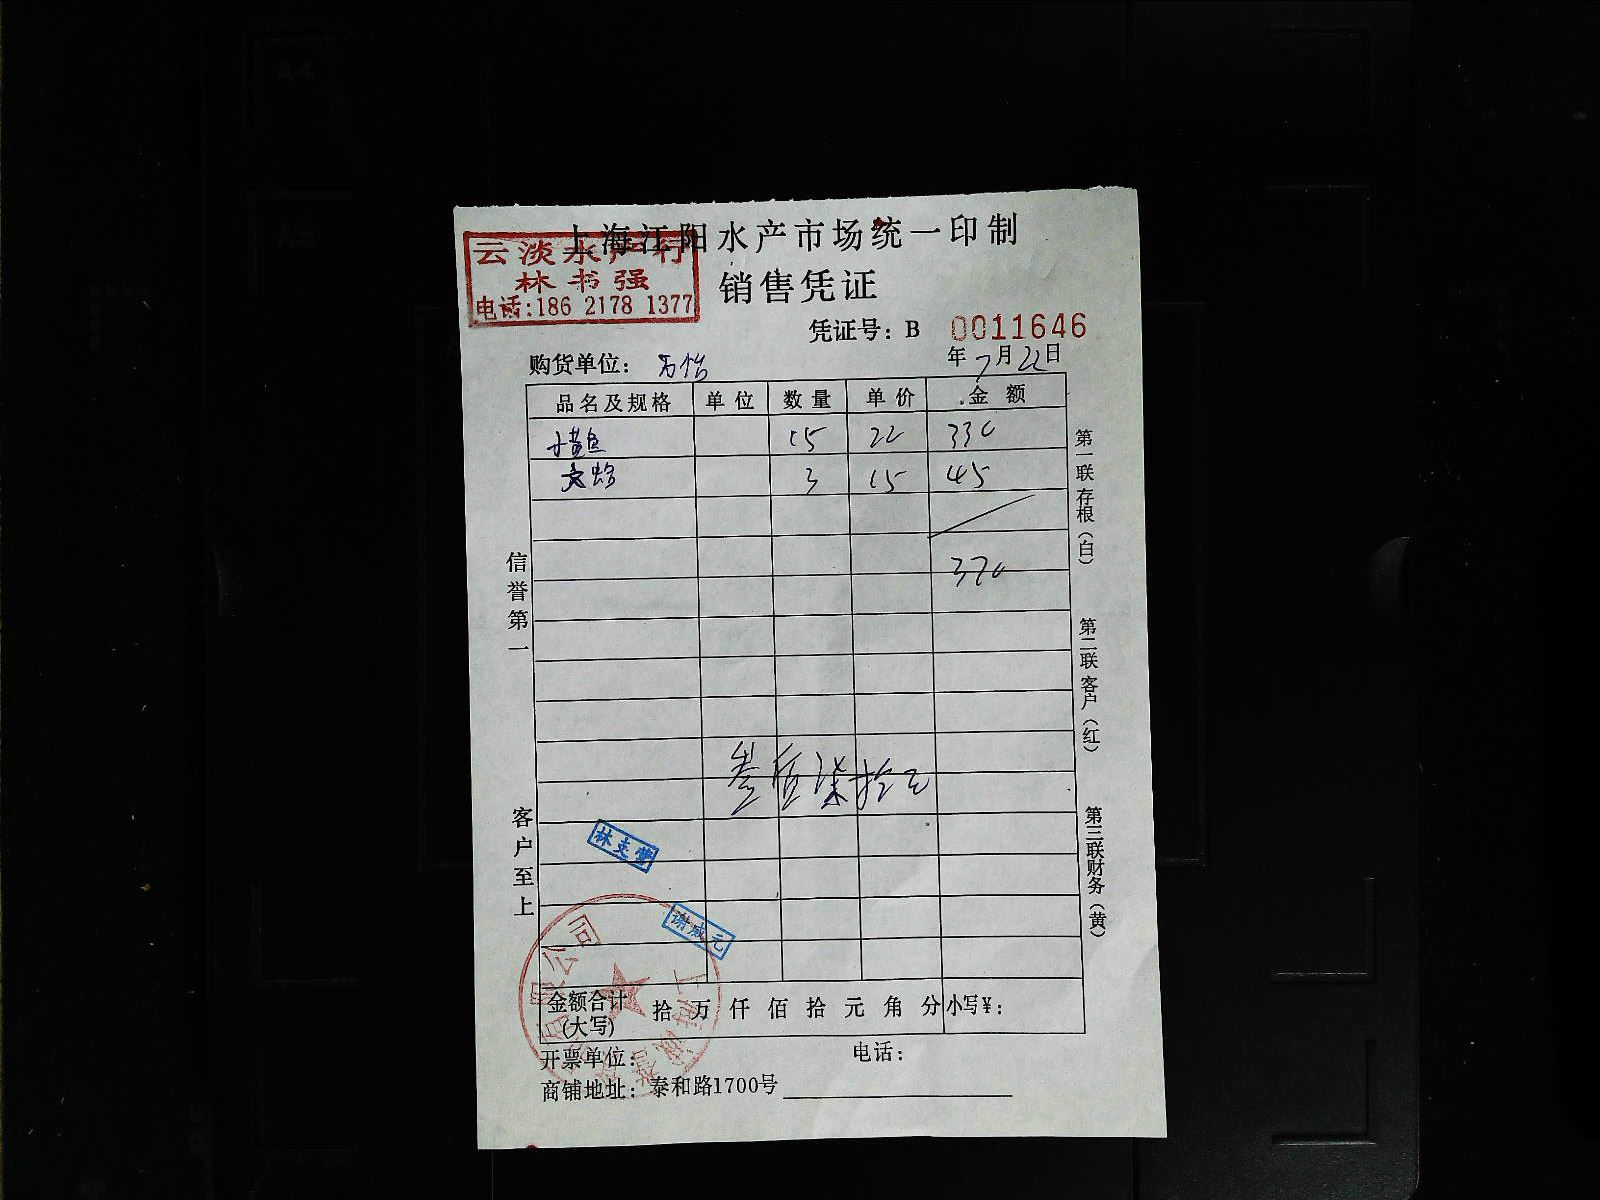 上海江阳水产市场统一印制
云淡水产行
林书强
电话:186 2178 1377
销售凭证
凭证号: B 0011646
购货单位:
年7月22日
品名及规格 单位 数量 单价 金额
小黄鱼 15 22 330
文蛤 3 15 45
370
叁佰柒拾元
林支莺
谢咸元
信誉第一
客户至上
第一联 存根（白）
第二联 客户（红）
第三联 财务（黄）
金额合计(大写) 拾 万 仟 佰 拾 元 角 分 小写¥:
开票单位: 电话:
商铺地址: 泰和路1700号